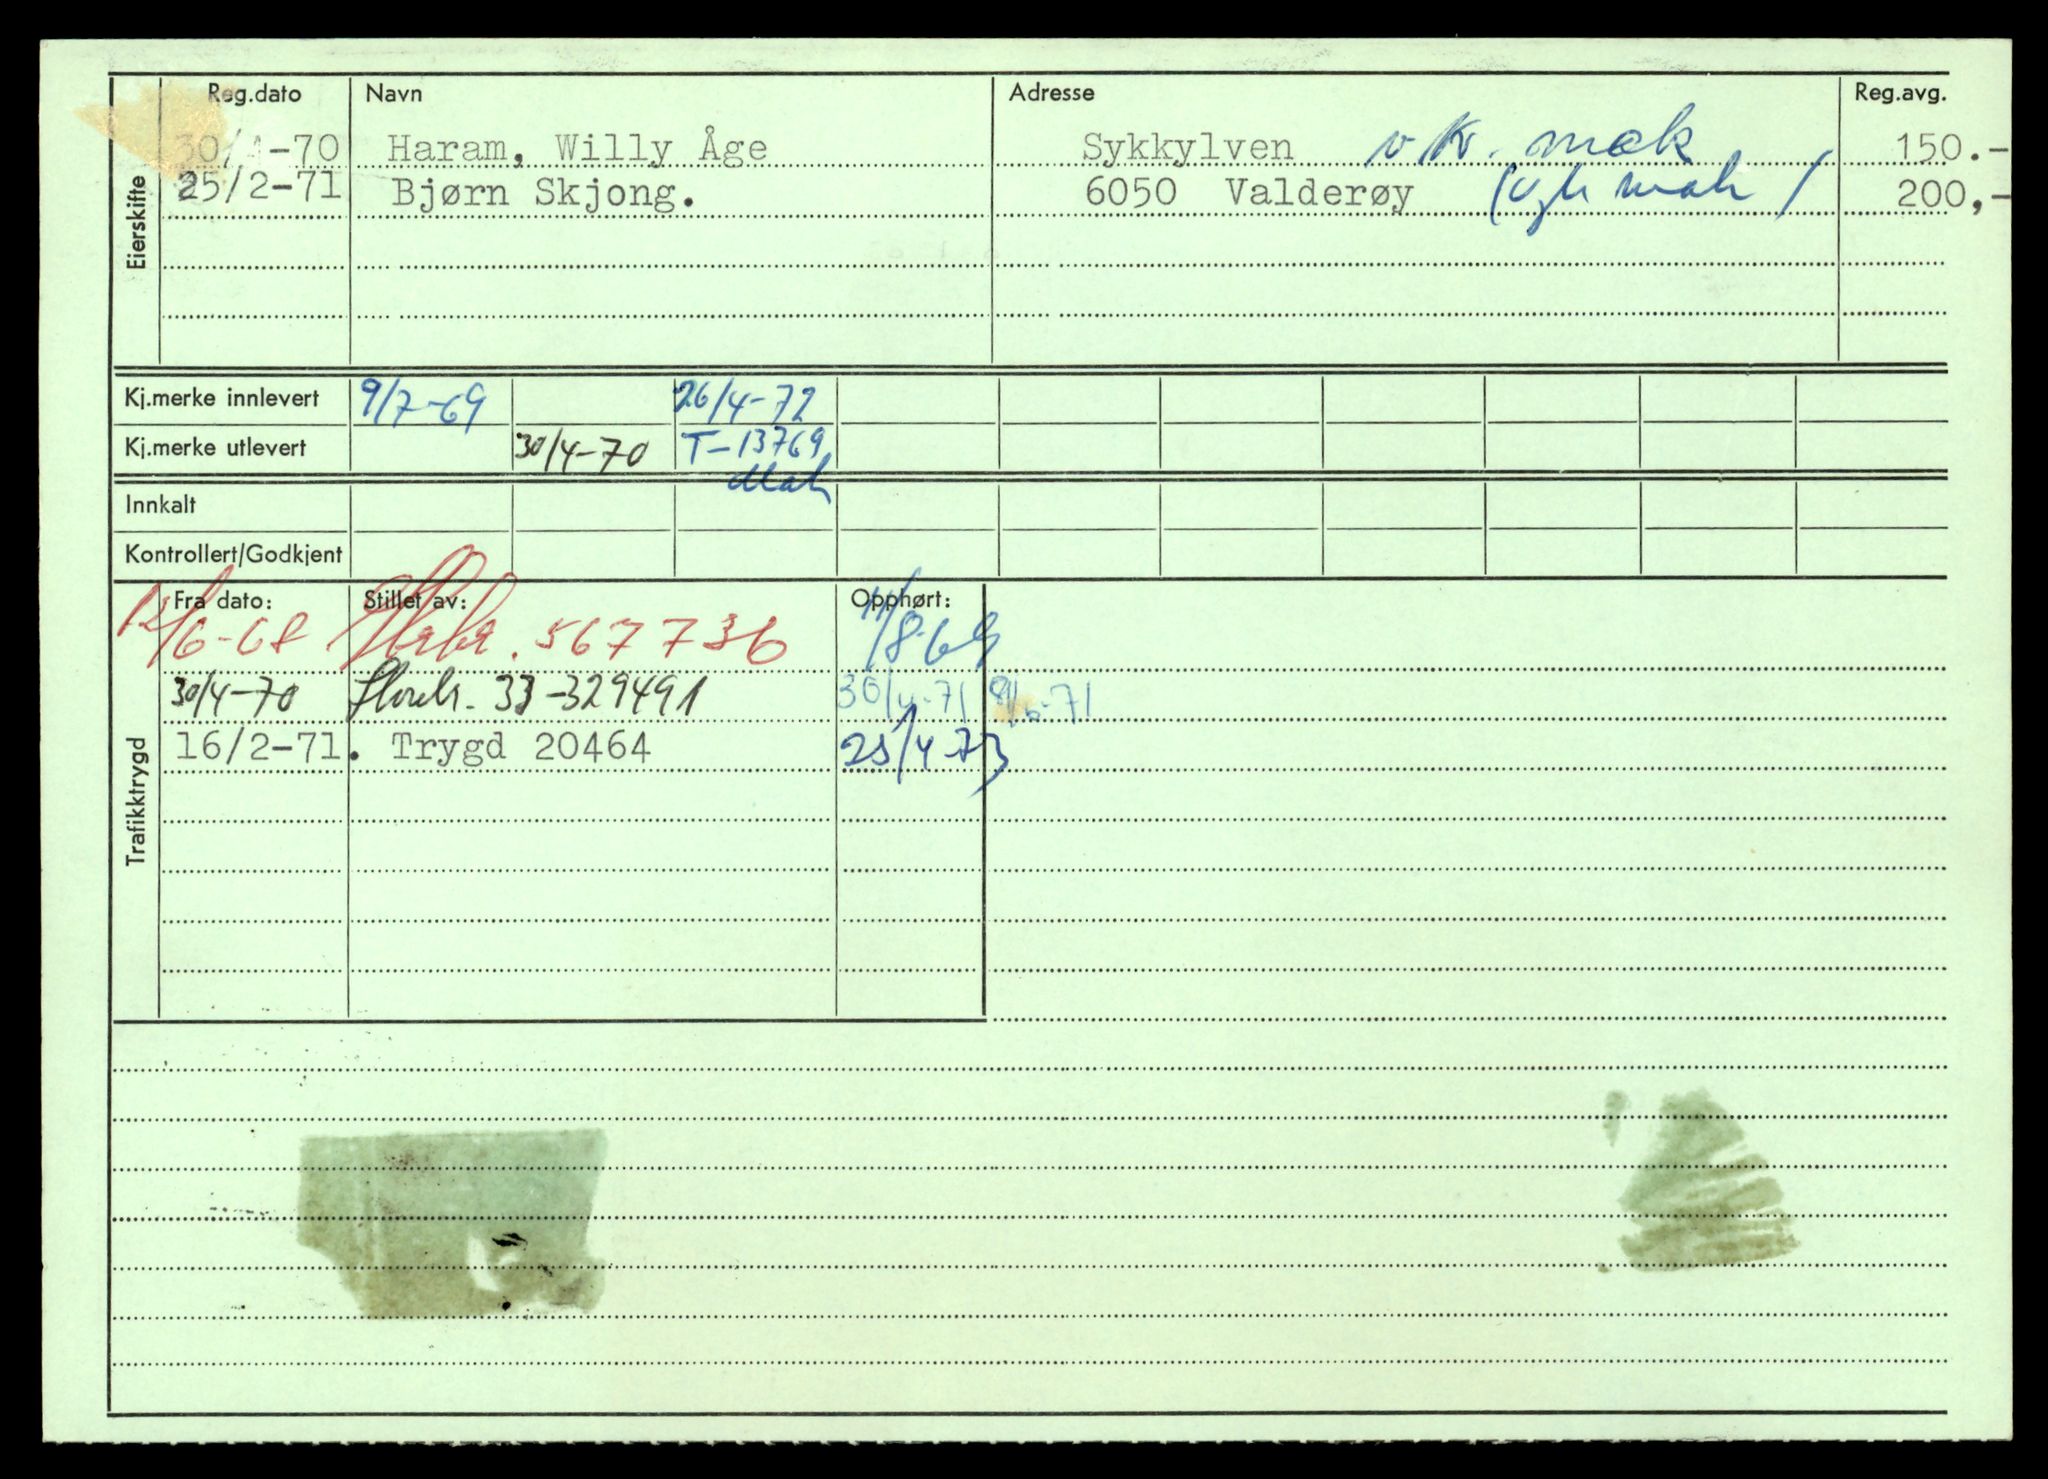 Reg.dato Navn Adresse Reg.avg.
30/4-70 Haram, Willy Åge Sykkylven v/kr. mak 150.-
25/2-71 Bjørn Skjong. 6050 Valderøy mak 200,-
Eierskifte
Kj.merke innlevert 9/7-69 26/4-72
Kj.merke utlevert 30/4-70 T-13769
Mak
Innkalt
Kontrollert/Godkjent
Fra dato: Stillet av: Opphørt:
/6-68 567736 11/8-69
30/4-70 33-329491 30/4-71 8/6-71
16/2-71. Trygd 20464 25/4-73
Trafikktrygd